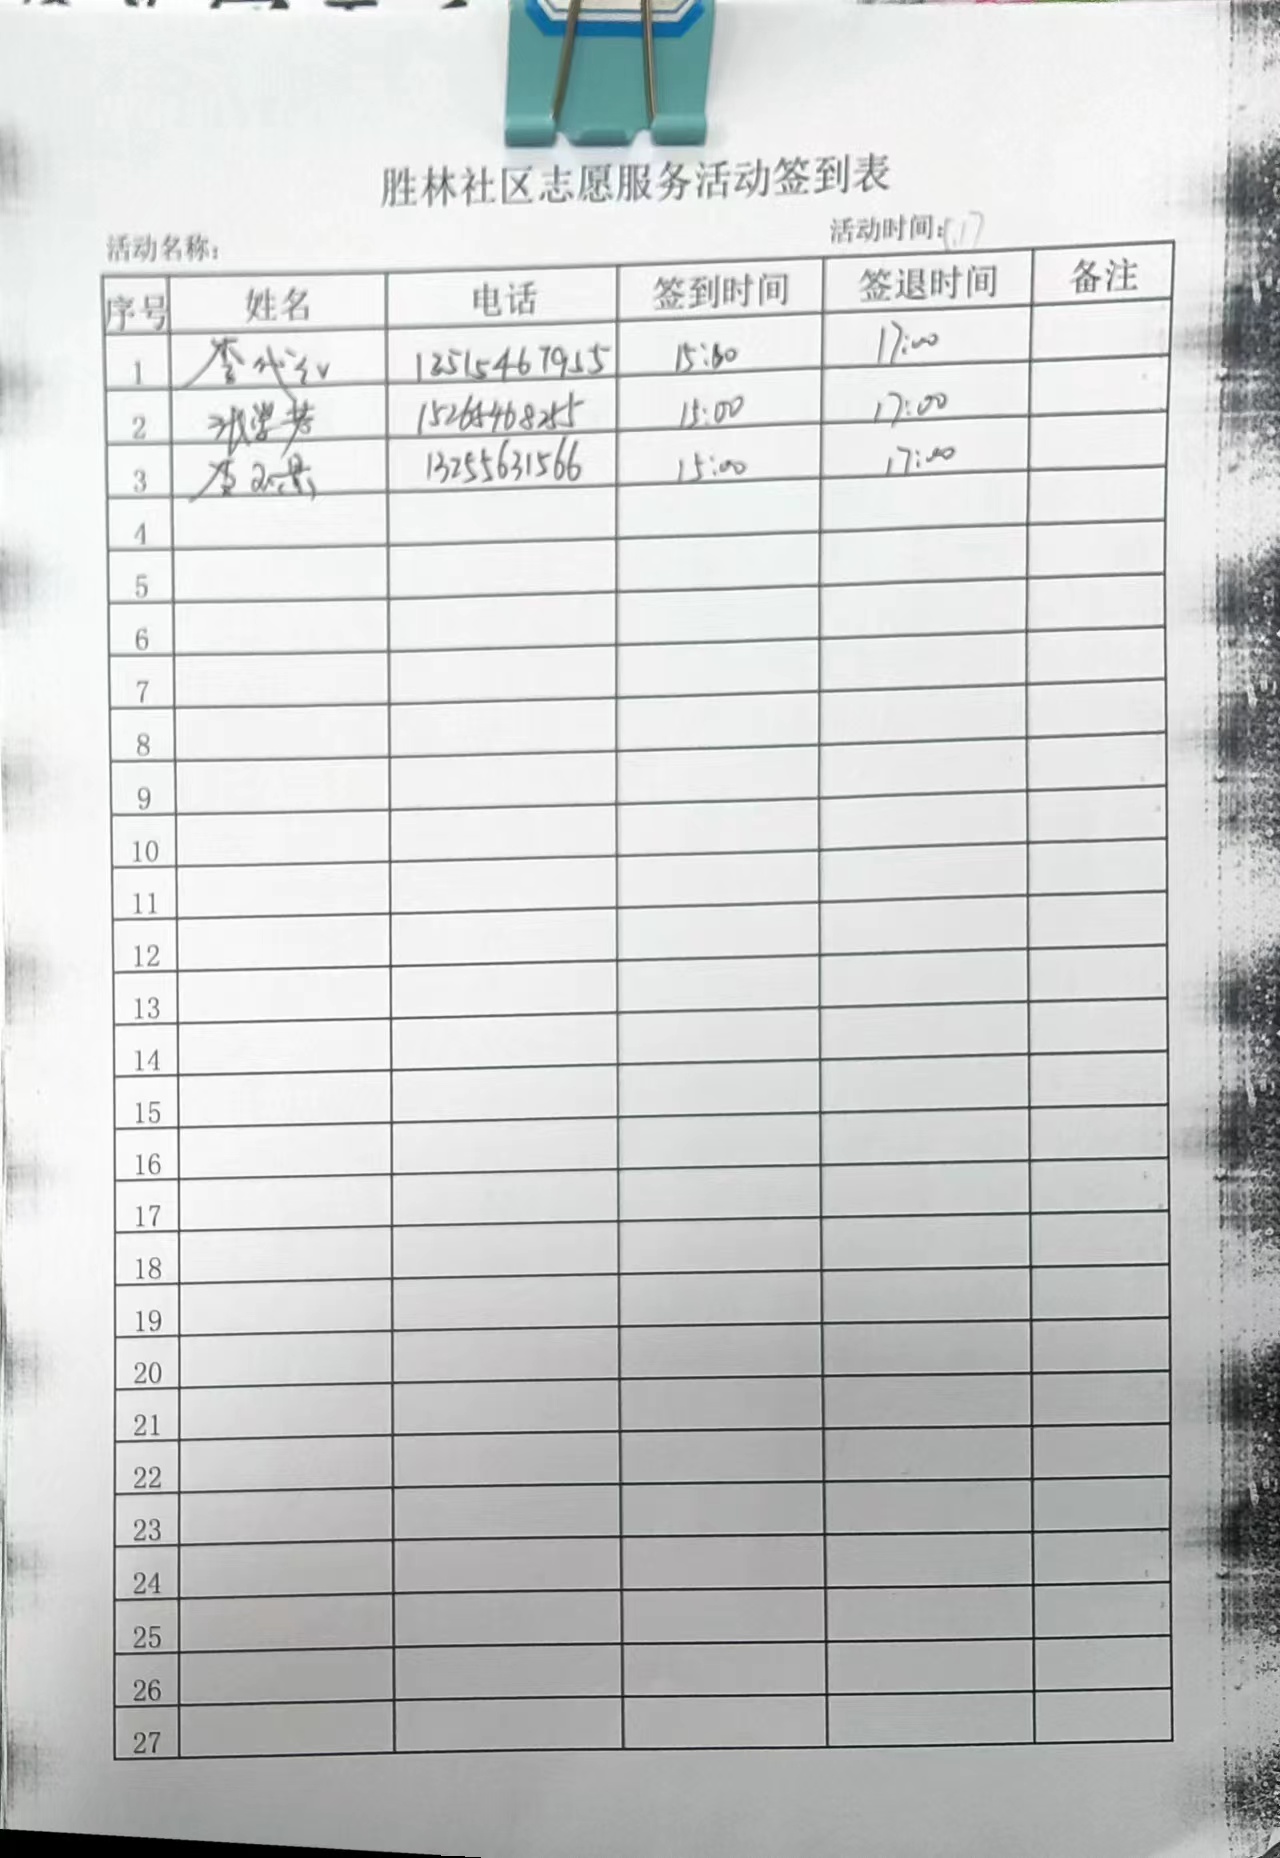 胜林社区志愿服务活动签到表
活动名称: 活动时间: 5.17
序号 姓名 电话 签到时间 签退时间 备注
1 李 13515467955 15:00 17:00
2 张学芳 15265468255 15:00 17:00
3 李 13255631566 15:00 17:00
4
5
6
7
8
9
10
11
12
13
14
15
16
17
18
19
20
21
22
23
24
25
26
27